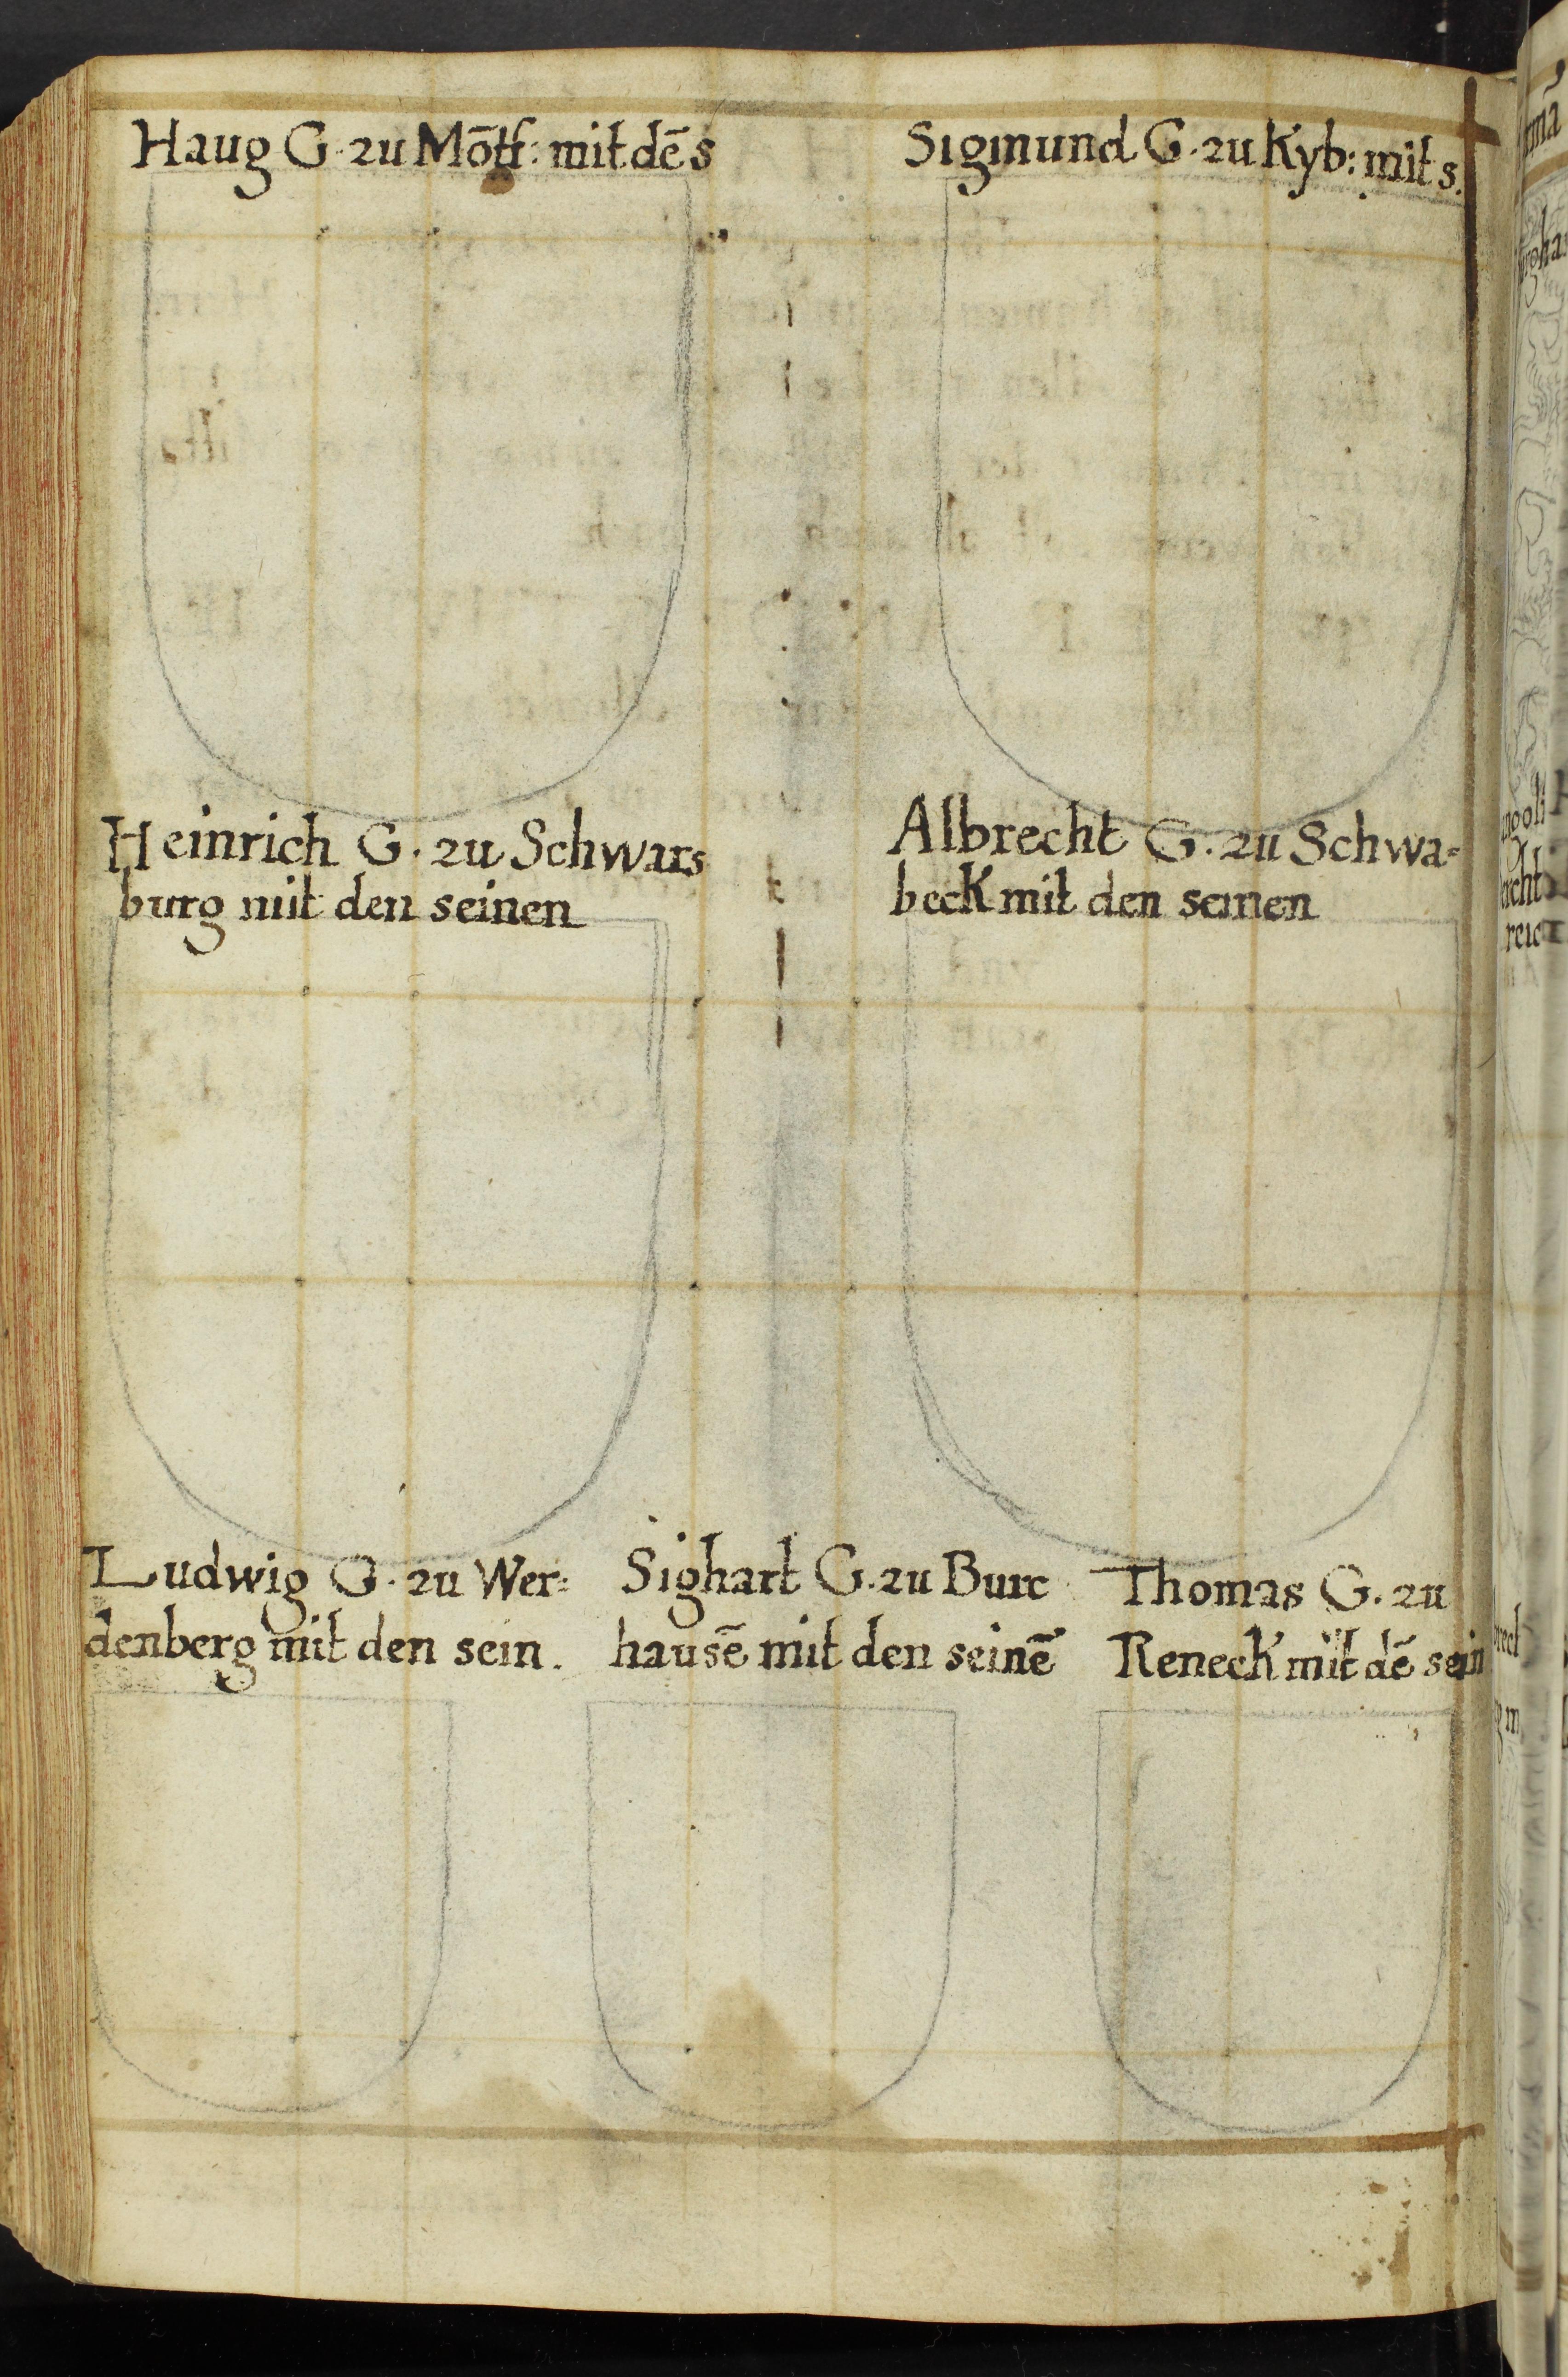 Haug G. zu Mōtf: mit dē s
Sigmund G. zu Kyb: mit s.
Heinrich G. zu Schwars
burg mit den seinen
Albrecht G. zu Schwa=
beck mit den seinen
Ludwig G. zu Wer=
denberg mit den sein.
Sighart G. zu Burc
hausē mit den seinē
Thomas G. zu
Reneck mit dē sein